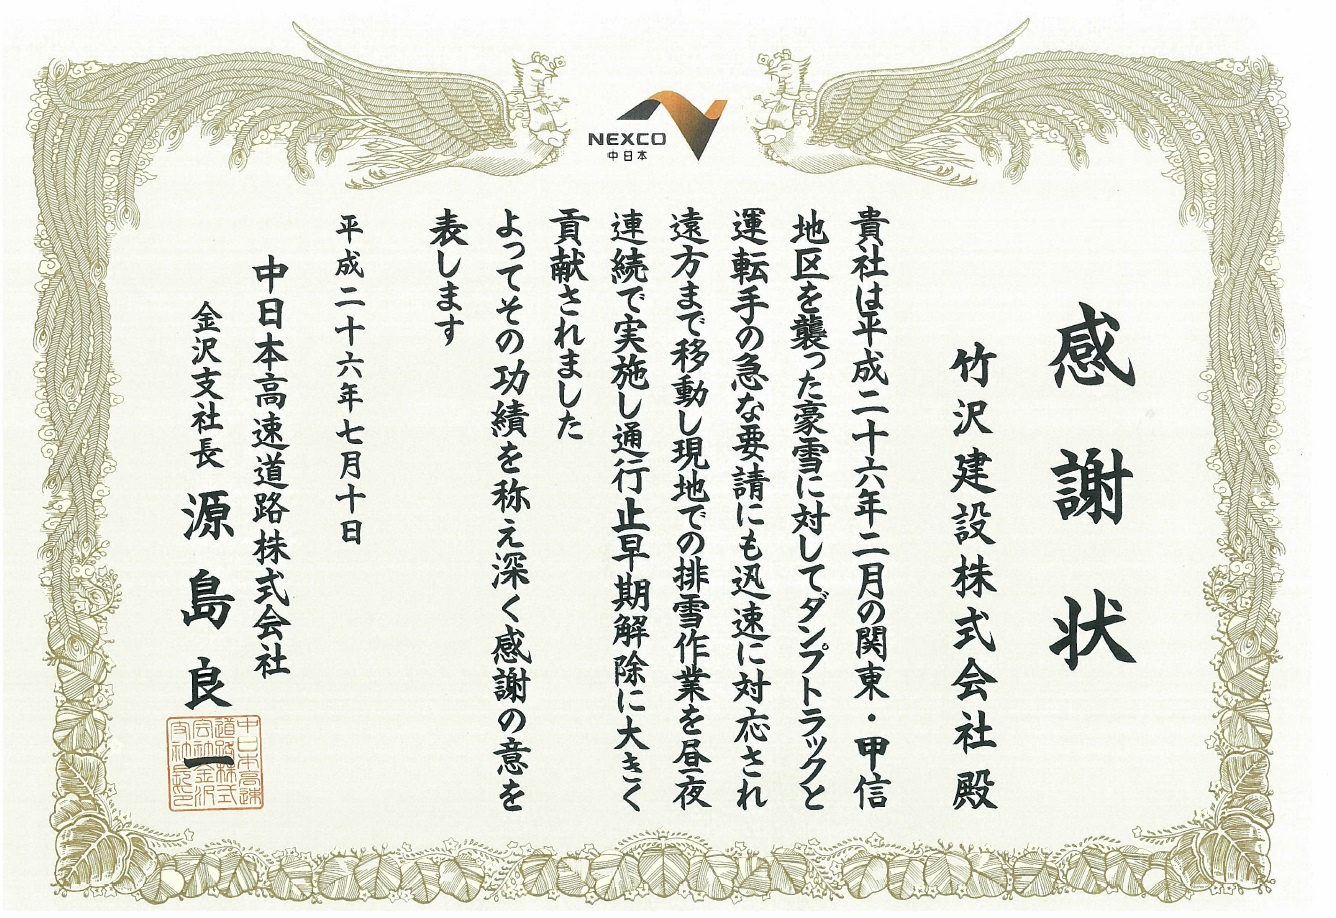 NEXCO
中日本
感謝状
竹沢建設株式会社殿
貴社は平成二十六年二月の関東・甲信
地区を襲った豪雪に対してダンプトラックと
運転手の急な要請にも迅速に対応され
遠方まで移動し現地での排雪作業を昼夜
連続で実施し通行止早期解除に大きく
貢献されました
よってその功績を称え深く感謝の意を
表します
平成二十六年七月十日
中日本高速道路株式会社
金沢支社長 源島良一
中日本高速
道路株式
会社金沢
支社長印